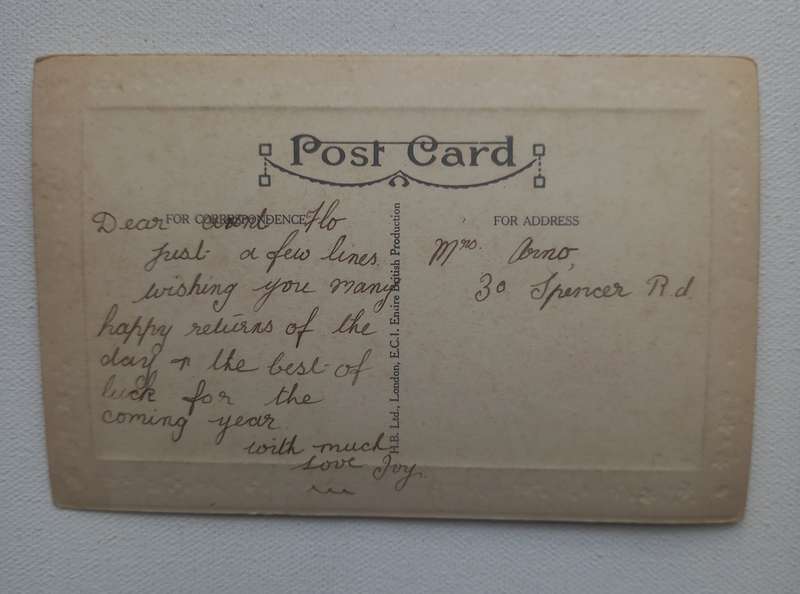 Post Card
FOR CORRESPONDENCE
FOR ADDRESS
Dear aunt Flo
just a few lines
wishing you many
happy returns of the
day & the best of
luck for the
coming year
with much
love Joy.
H.B. Ltd., London, E.C.1. Entire British Production
Mrs. Arno,
30 Spencer Rd